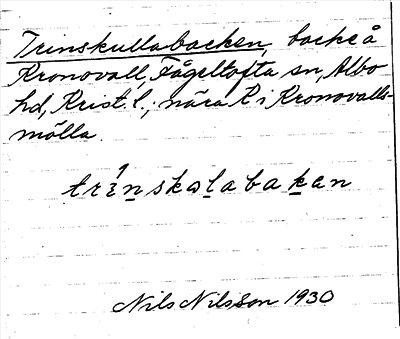 Trinskullabacken, backe å
Kronovall, Fågeltofta sn, Albo
hd, Krist. l.; nära R i Kronovalls-
mölla.
trinskalabakan
Nils Nilsson 1930